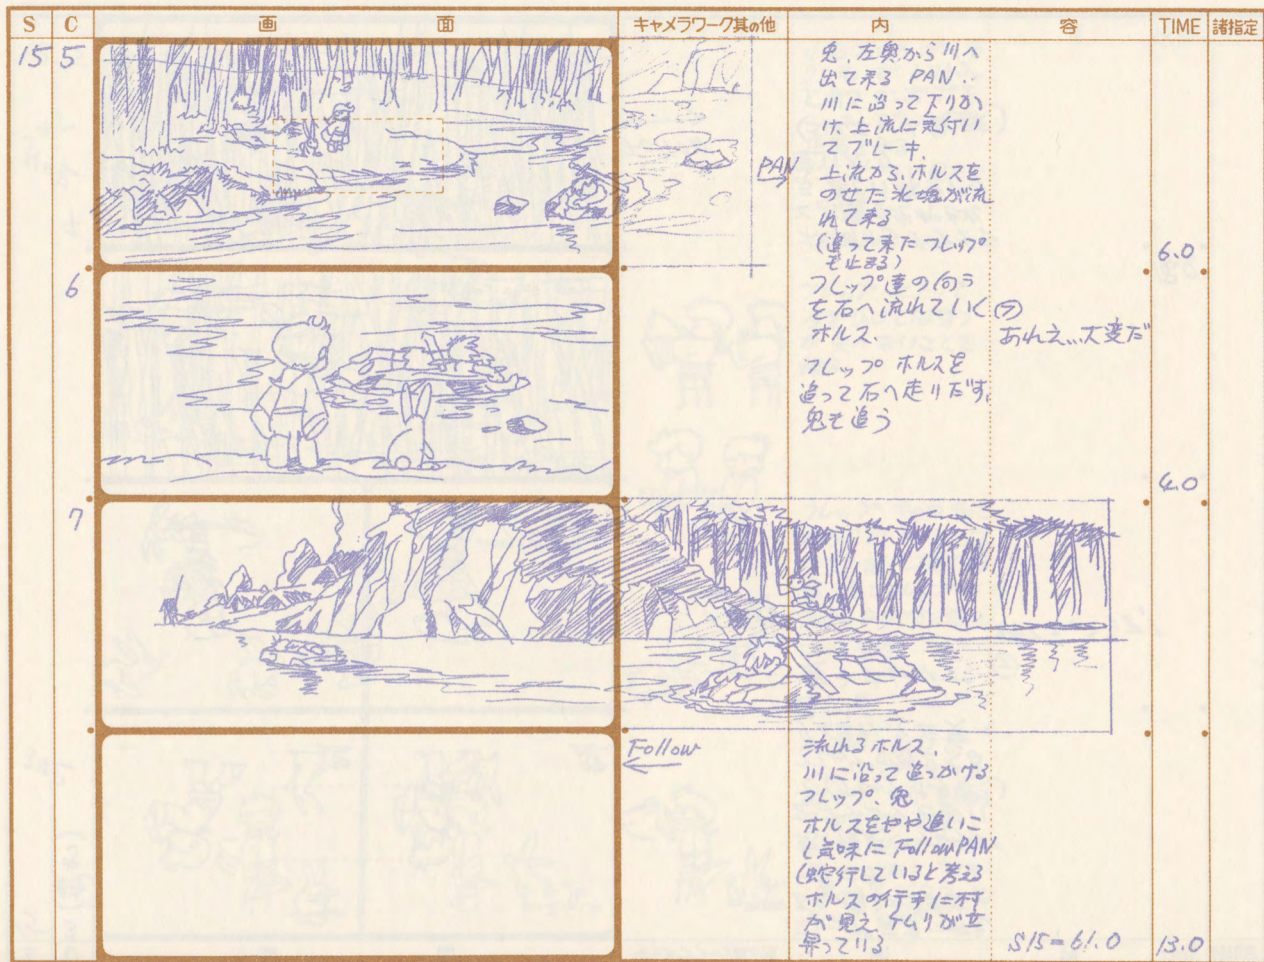 S C 画 面 キャメラワーク其の他 内 容 TIME 諸指定
15 5
兎、左奥から川へ
出て来る PAN..
川に沿って下りか
け、上流に気付い
てブレーキ、
上流から、ホルスを
のせた氷塊が流
れて来る
(追って来たフレップ
も止まる)
PAN
6.0
6
フレップ達の向う
を右へ流れていく
ホルス、
フレップ ホルスを
追って右へ走りだす。
兎も追う
㋫
あれえ...大変だ
4.0
7
Follow
流れるホルス、
川に沿って追っかける
フレップ、兎
ホルスをやや追いこ
し気味に Follow PAN
(蛇行していると考える
ホルスの行手に村
が見え、ケムリが立
昇っている
S15=61.0
13.0